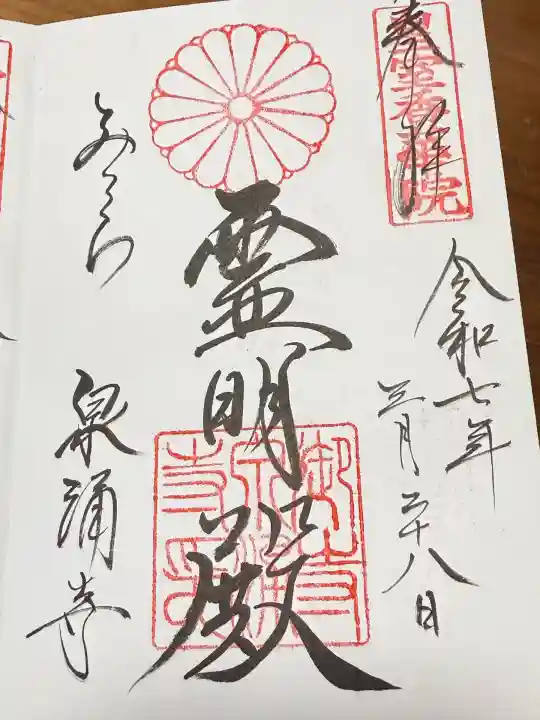 奉拝
皇室香華院
令和七年
三月二十八日
霊明殿
御寺泉涌寺印
みてら
泉涌寺